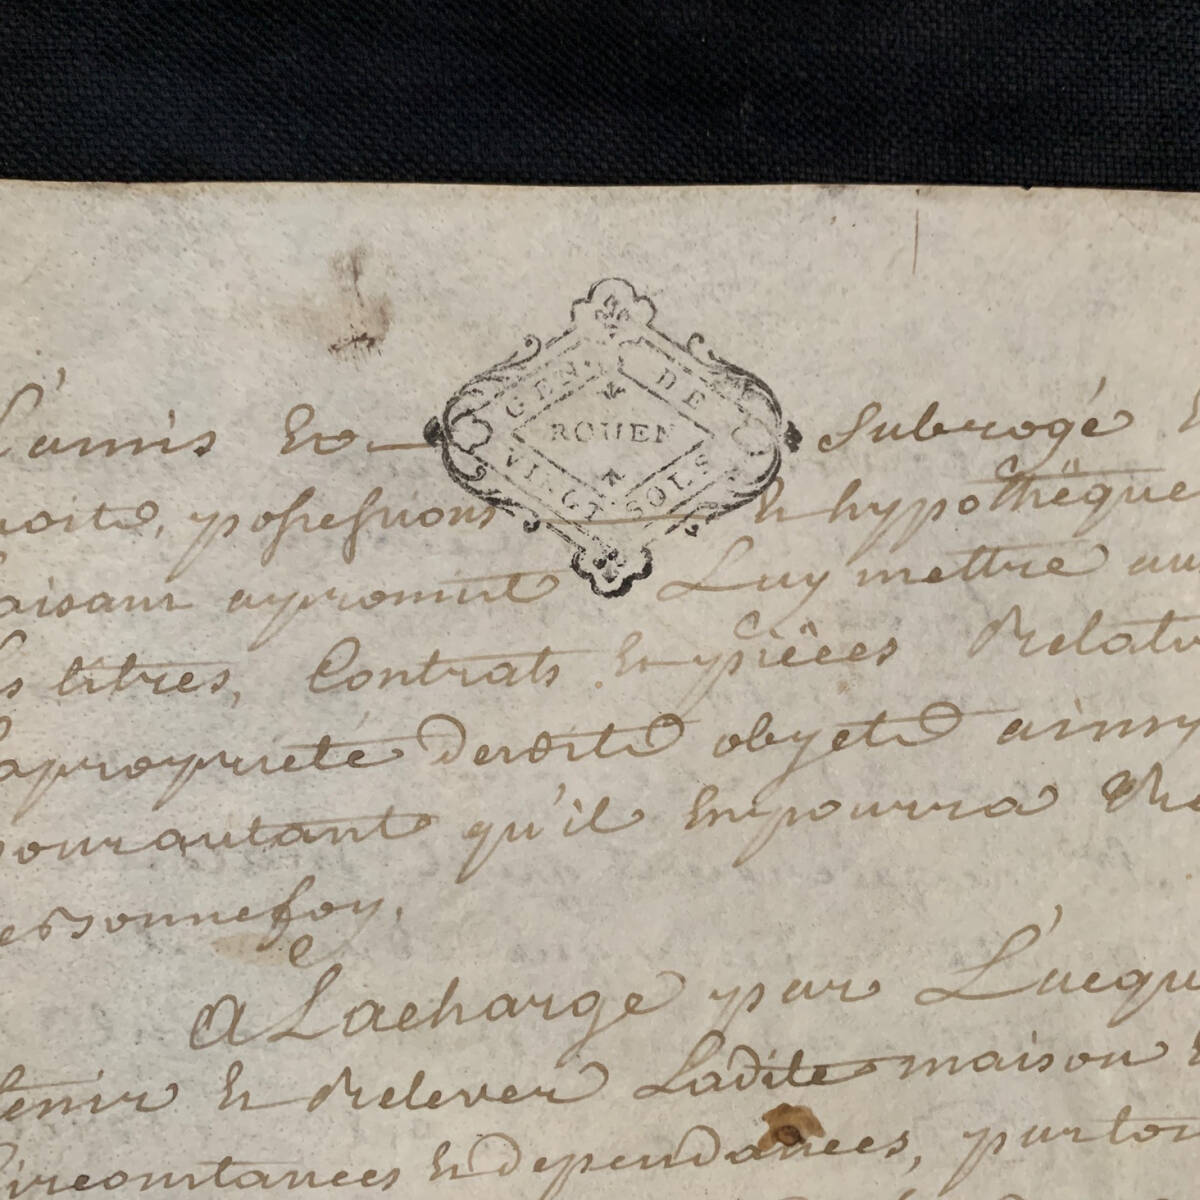 GEN. DE
ROUEN
VINGT SOLS
L'amis Et subrogé
droits, possessions Et hypothéques
faisant a promit Luy mettre aux
les titres, Contrats Et pièces Relati
la proprieté desdits objets ainsy
pour autant qu'il En pourra
de Bonnefoy.
a La charge par L'acque
tenir Et Relever Ladite maison
Circonstances Et dependances, par tou